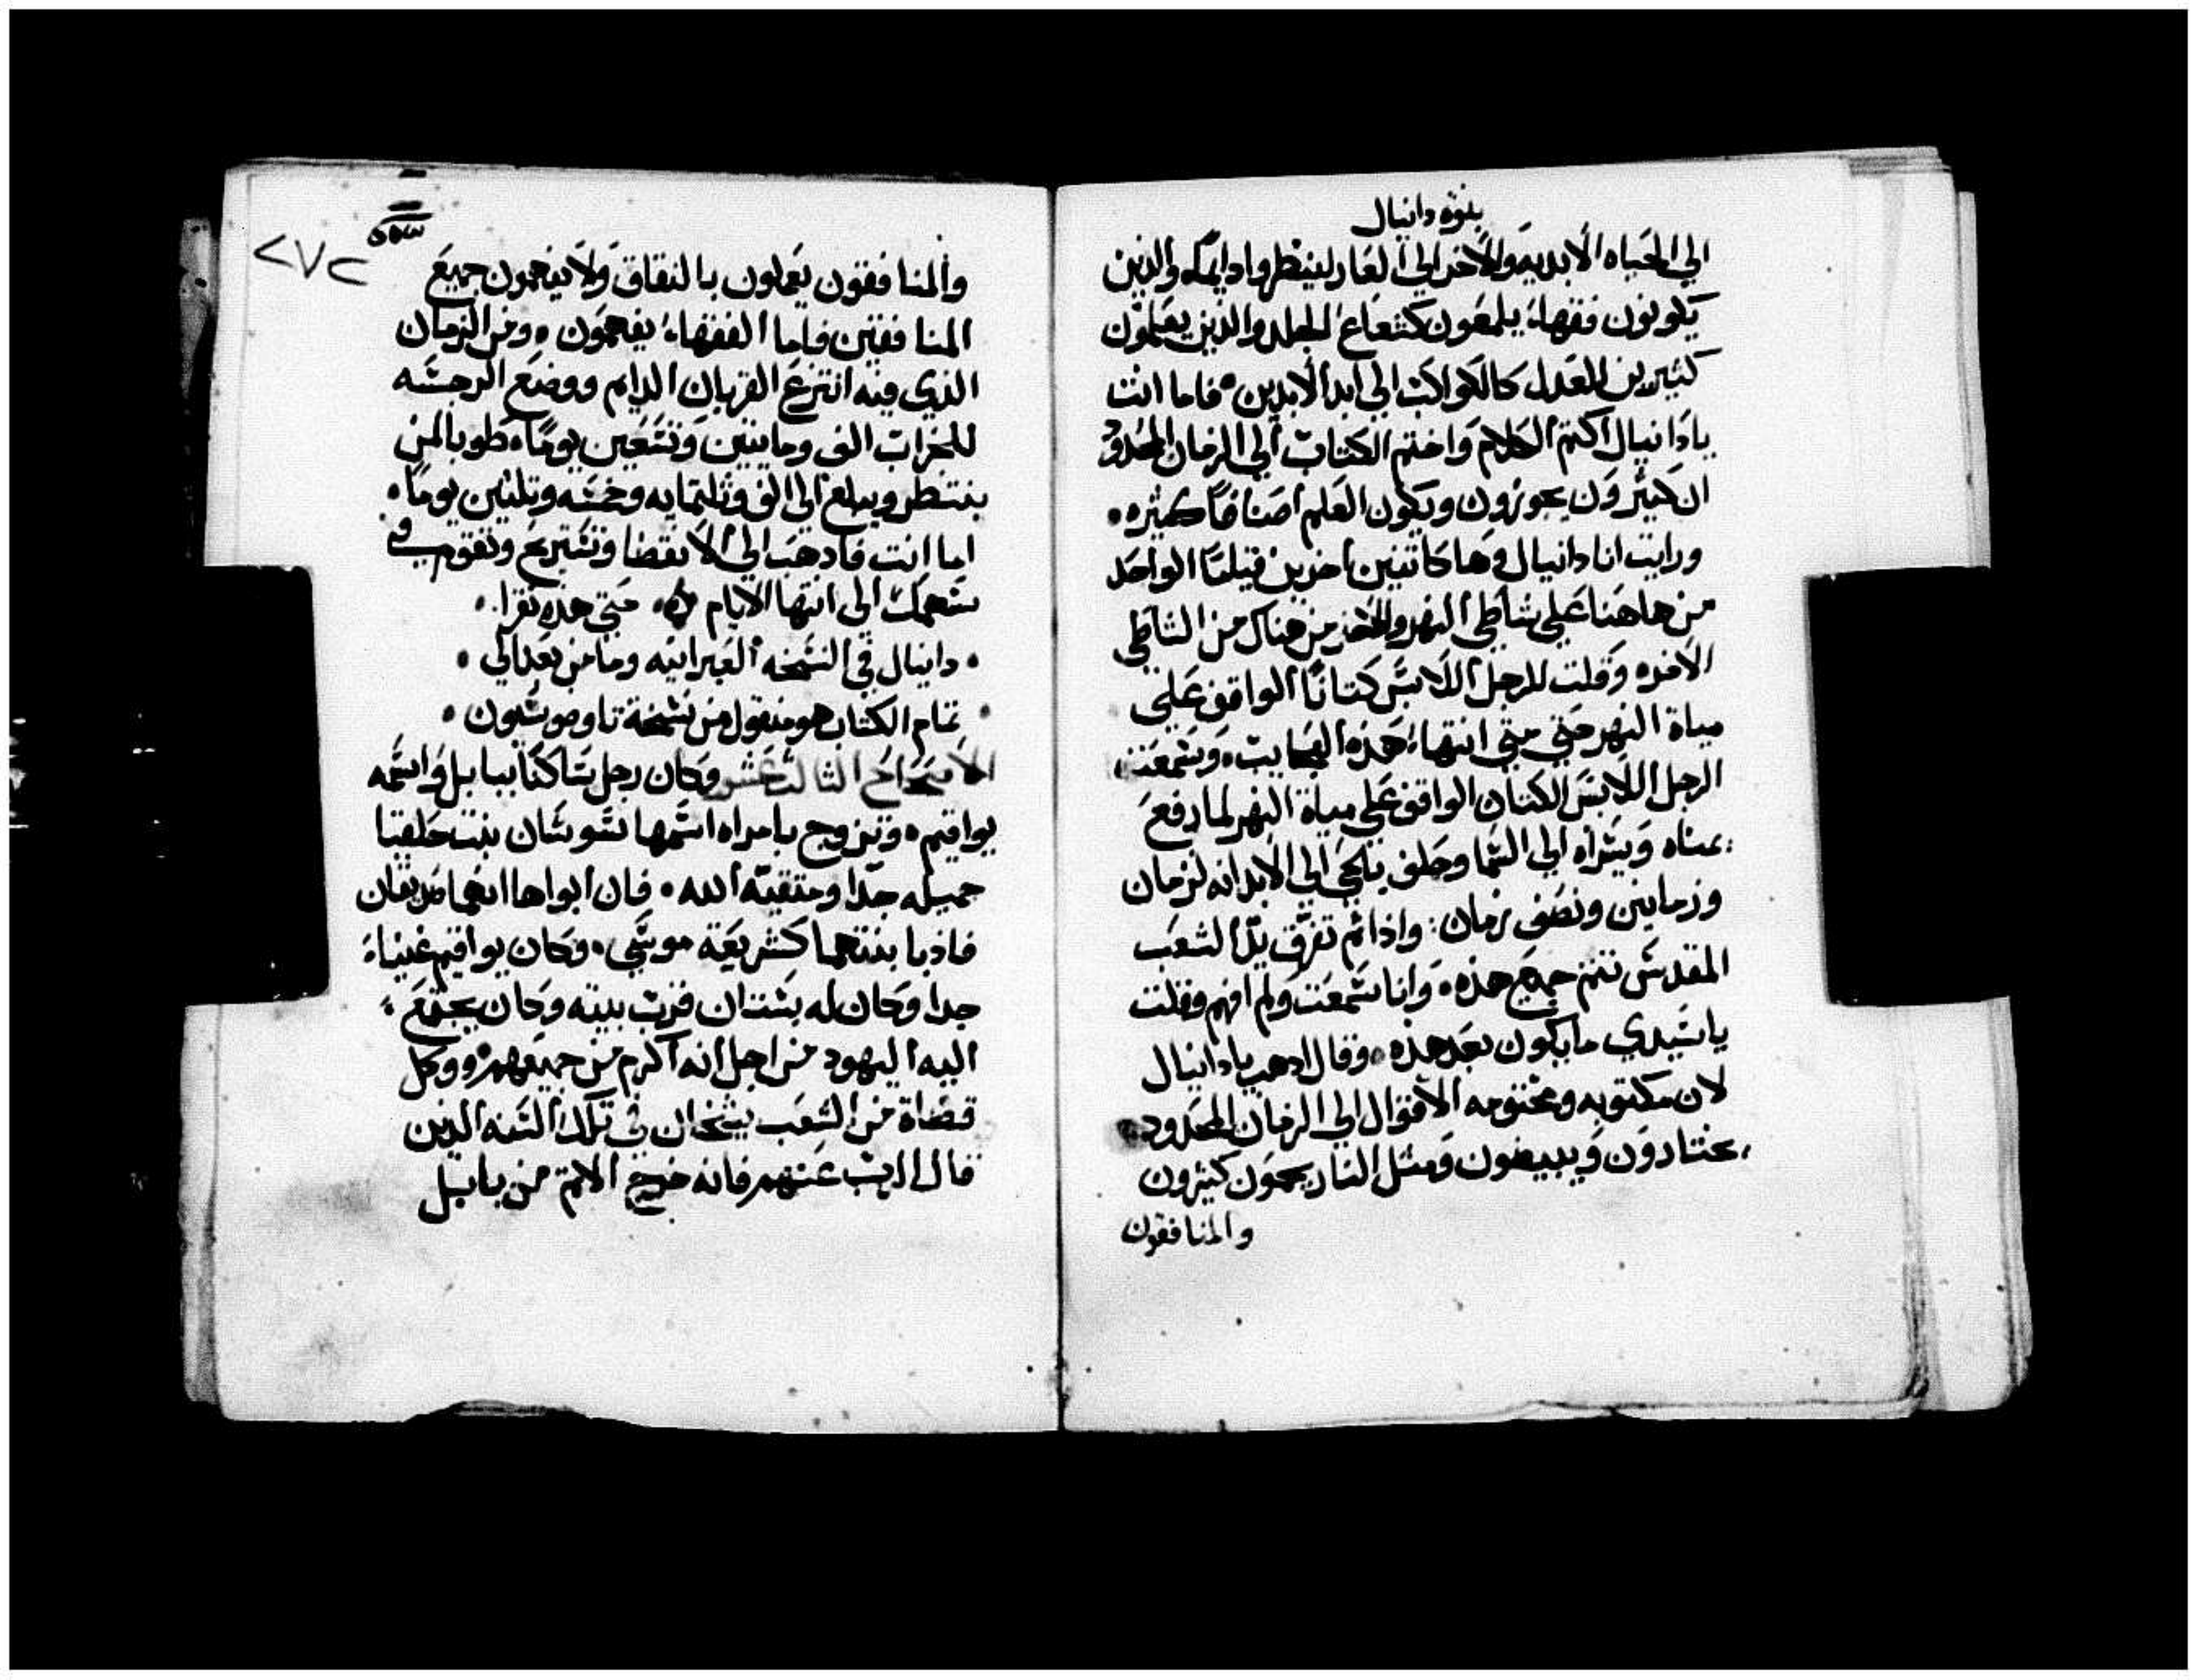 بنوة دانيال
الي الحياه الابديه والاخر الي العار لينظروا دايمًا والذين
يكونون فقها يلمعون كشعاع الجلد والذين يعلمون
كثيرين العدل كالكواكب الي ابد الابدين • فاما انت
يا دانيال اكتم الكلام واختم الكتاب الي الزمان المحدود
ان كثيرون يجوزون ويكون العلم اصنافًا كثيره •
ورايت انا دانيال وها كاثنين اخرين قيامًا الواحد
من هاهنا علي شاطي النهر والاخر من هناك من الشاطي
الاخره وقلت للرجل اللابس كتانًا الواقف علي
مياة النهر حتي متي انتهاء هذه العجايب • وسمعت
الرجل اللابس الكتان الواقف علي مياة النهر لما رفع
يمناه ويسراه الي السما وحلف بالحي الي الابد انه لزمان
وزمانين ونصف زمان : واذا تم تفرق يد الشعب
المقدس تتم جميع هذه • وانا سمعت ولم افهم وقلت
يا سيدي ما يكون بعد هذه • وقال اذهب يا دانيال
لان مكتوبه ومختومه الاقوال الي الزمان المحدود •
يختارون ويبيضون ومثل النار يمحون كثيرون
والمنافقون
٢٧٢
والمنافقون يعملون بالنفاق ولا يفهمون جميع
المنافقين فاما الفقهاء يفهمون • ومن الزمان
الذي فيه انتزع القربان الدايم ووضع الرجسه
للخراب الف ومايتين وتسعين يومًا • طوبا لمن
ينتظر ويبلغ الي الف وثلثمايه وخمسه وثلثين يومًا •
اما انت فاذهب الي الانقضا وتستريح وتقوم في
سهمك الي انتها الايام • متي هذه تقرا •
• دانيال في النسخه العبرانيه وما من بعد الي •
• تمام الكتاب هو منقول من نسخة تاوضوسيون •
الاصحاح الثالث عشر وكان رجل ساكنًا ببابل واسمه
يواقيم • وتزوج بامراه اسمها سوسان بنت حلقيا
جميله جدًا ومتقية الله • فان ابواها انهما صديقان
فادبا بنتهما كشريعة موسي • وكان يواقيم غنياء
جدا وكان له بستان قرب بيته وكان يجتمع
اليه اليهود من اجل انه اكرم من جميعهم • ووكل
قضاة من الشعب شيخان في تلك السنه الذين
قال الرب عنهم فانه خرج الاثم من بابل